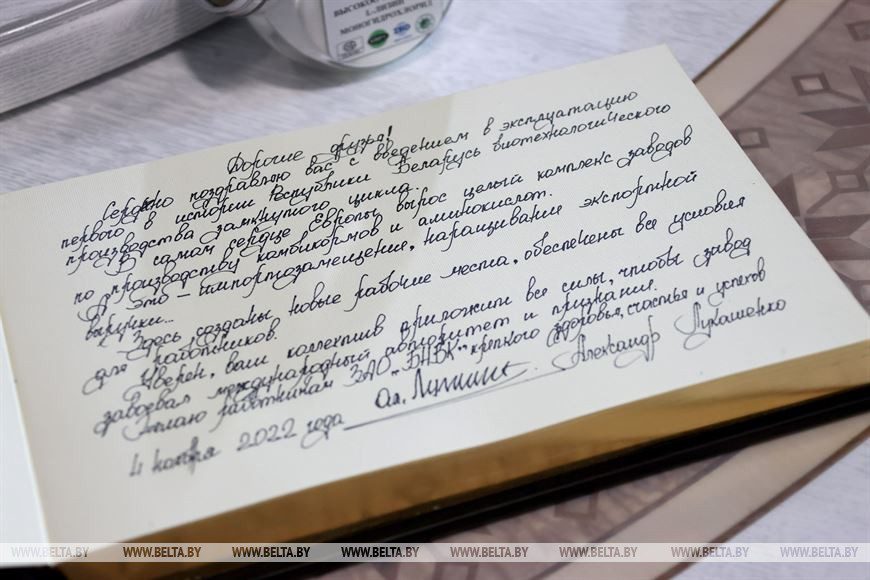 ВЫСОКО
L-ЛИЗИН
МОНОГИДРОХЛОРИД
ISO
Дорогие друзья!
Сердечно поздравляю вас с введением в эксплуатацию
первого в истории Республики Беларусь биотехнологического
производства замкнутого цикла.
В самом сердце Европы вырос целый комплекс заводов
по производству комбикормов и аминокислот.
А это – импортозамещение, наращивание экспортной
выручки...
Здесь созданы новые рабочие места, обеспечены все условия
для работников.
Уверен, ваш коллектив приложит все силы, чтобы завод
завоевал международный авторитет и признание.
Желаю работникам ЗАО „БНБК" крепкого здоровья, счастья и успехов
4 ноября 2022 года Александр Лукашенко
WWW.BELTA.BY WWW.BELTA.BY WWW.BELTA.BY WWW.BELTA.BY WWW.BELTA.BY WWW.BELTA.BY WWW.BELTA.BY WWW.BELTA.BY